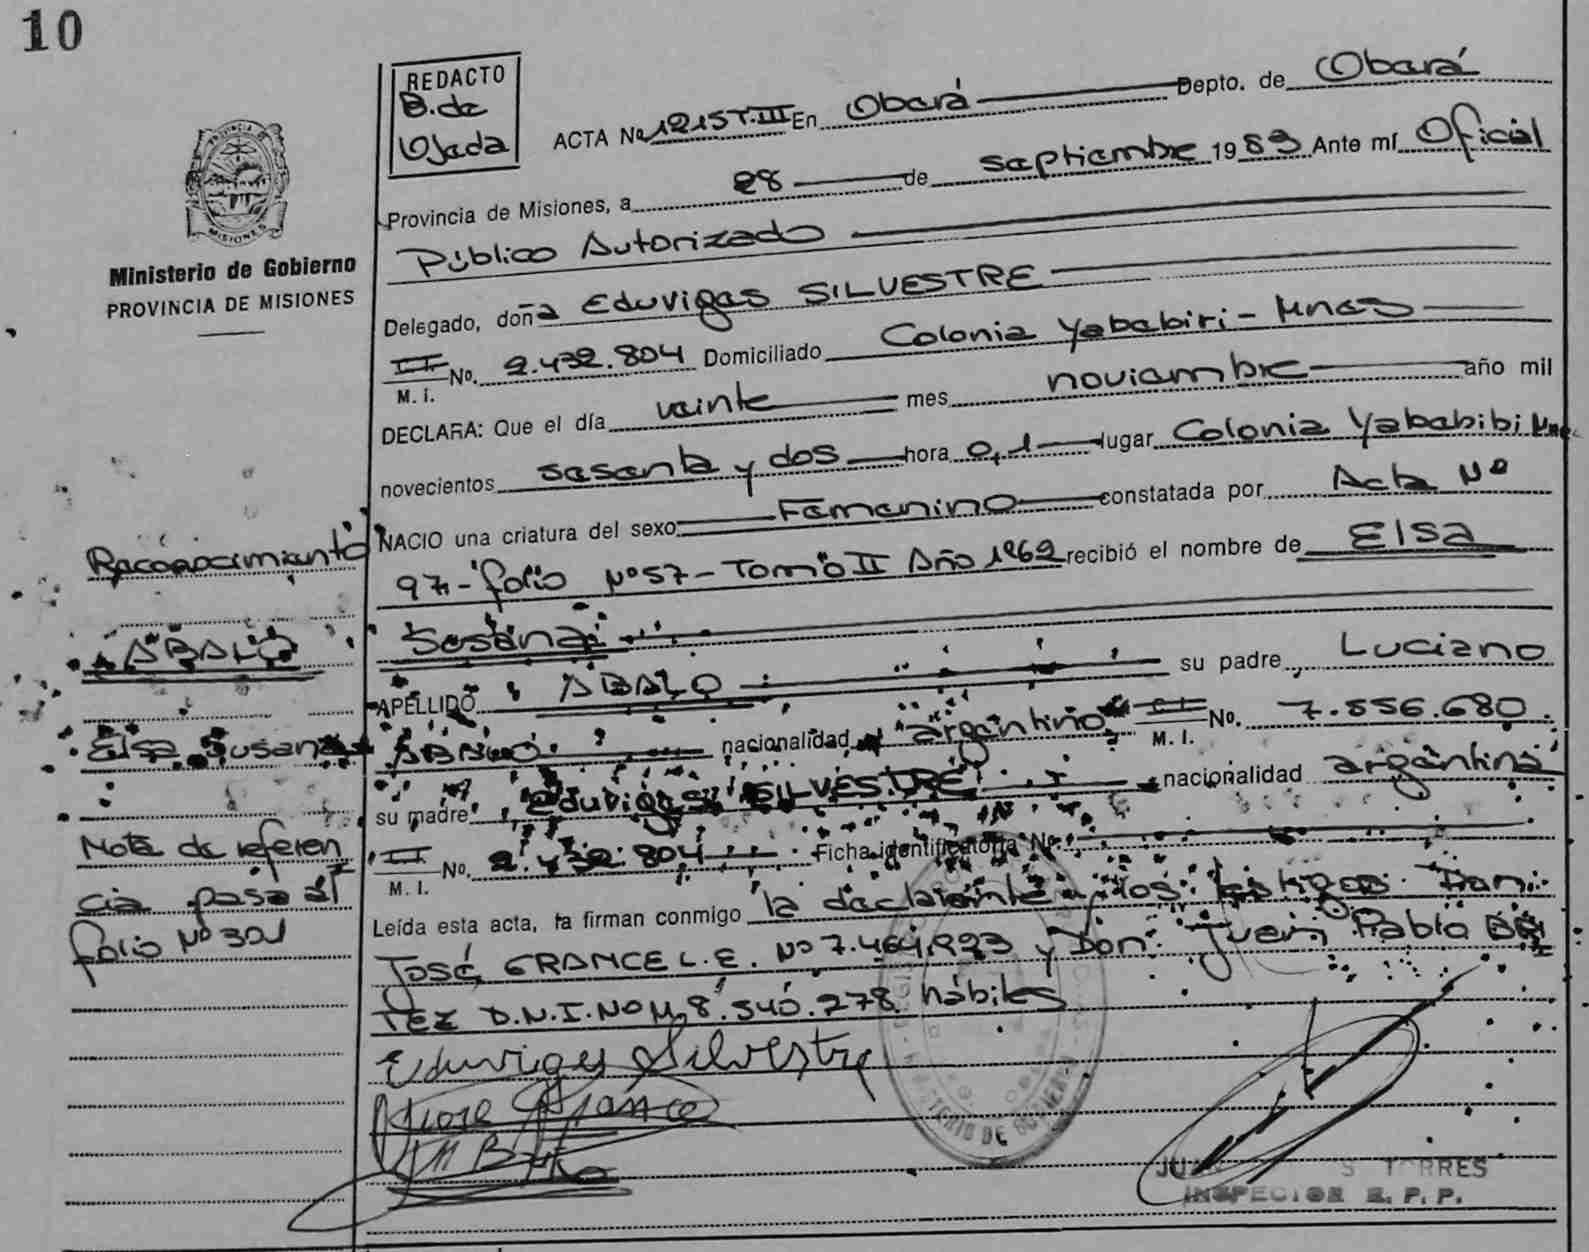 10
REDACTO
B. de
Ojeda
ACTA No 1215 T.III En Oberá Depto. de Oberá
Provincia de Misiones, a 28 de septiembre 1983 Ante mí Oficial
Público Autorizado
Delegado, doña Eduviges SILVESTRE
No. 2.432.804 Domiciliado Colonia Yababiri - Mnes
M. I.
DECLARA: Que el día veinte mes noviembre año mil
novecientos sesenta y dos hora 0,1 lugar Colonia Yababibi Mnes
NACIO una criatura del sexo: Femenino constatada por Acta Nº
97, - folio Nº 57 - Tomo II Año 1962 recibió el nombre de Elsa
Susana
APELLIDO ABALO su padre, Luciano
ABALO nacionalidad argentino No. 7.556.680
M. I.
su madre Eduviges SILVESTRE nacionalidad argentina
No. 2.432.804 Ficha identificatoria Nº
M. I.
Leída esta acta, la firman conmigo la declarante y los testigos
José GRANCE L.E. Nº 7.464.993 y Don: Juan Pablo
TEZ D.N.I. Nº M. 8.540.278 hábiles
Eduviges Silvestre
Jose Grance
JUAN S TORRES
INSPECTOR R. P. P.
PROVINCIA DE
MISIONES
Ministerio de Gobierno
PROVINCIA DE MISIONES
Reconocimiento
ABALO
Elsa Susana
Nota de referen
cia pasa al
folio Nº 301